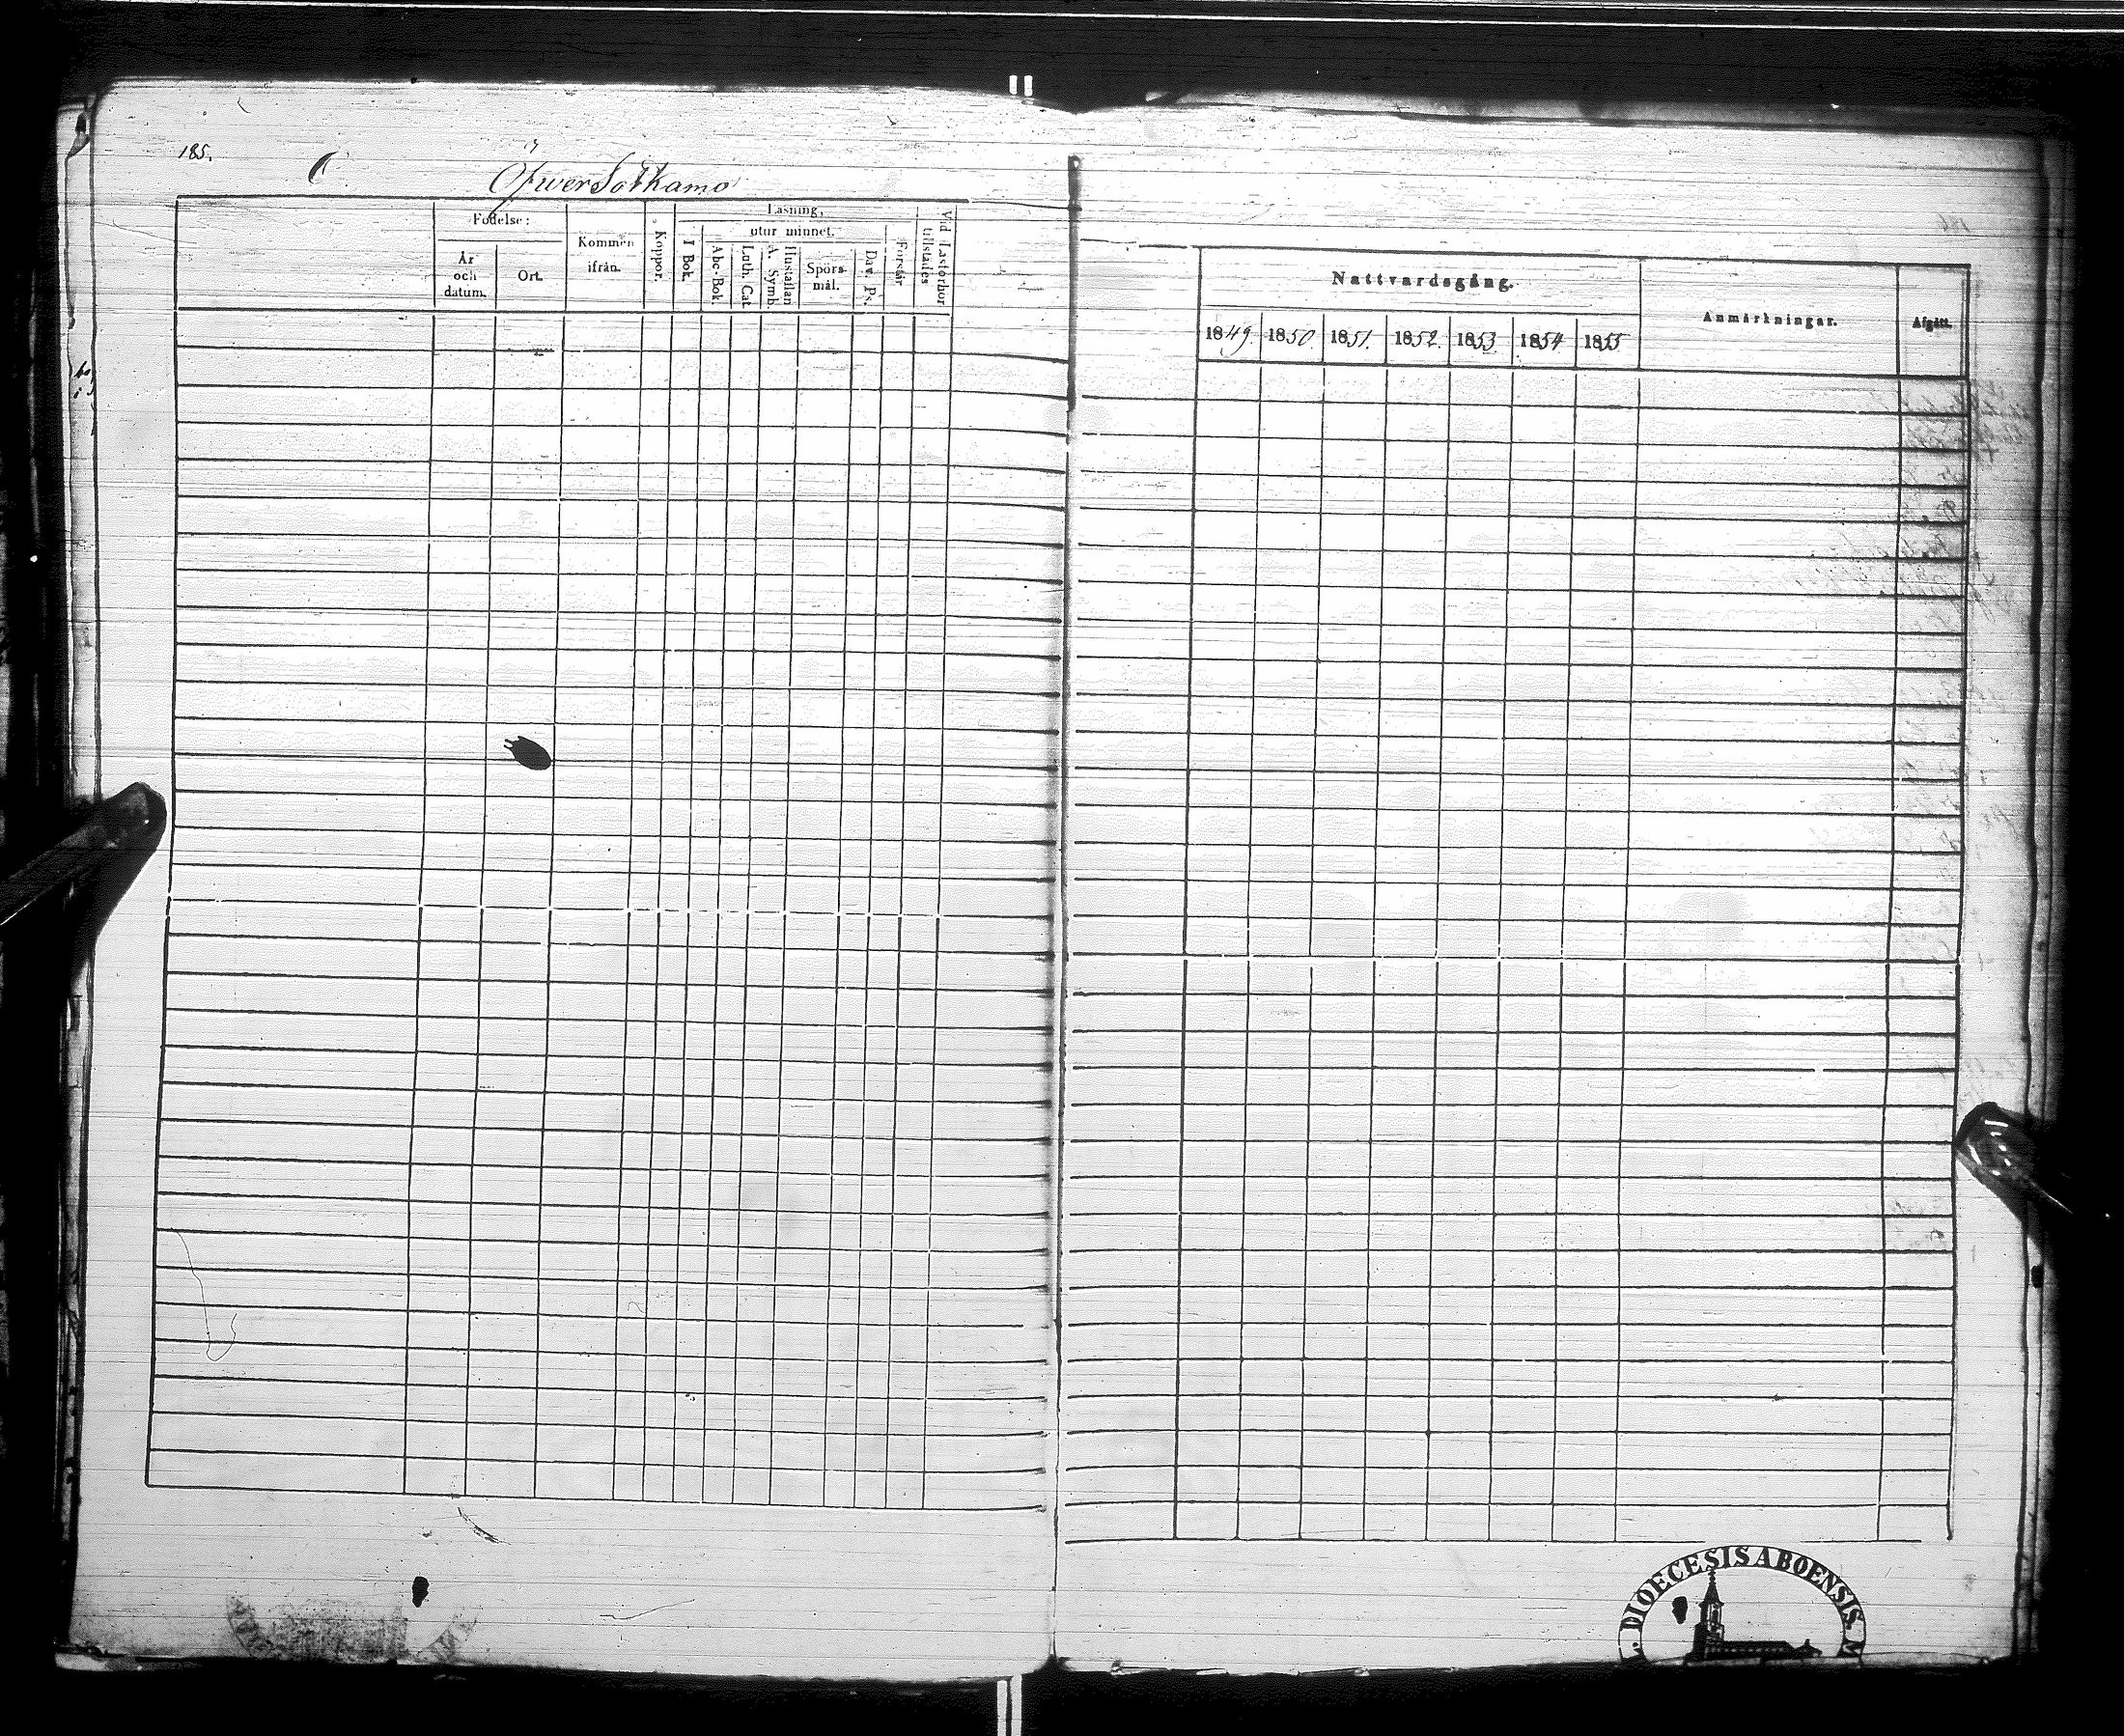 185.
Öfwer Sotkamo
Födelse:
År och datum.
Ort.
Kommen ifrån.
Koppor.
Läsning,
utur minnet.
I Bok.
Abc-Bok.
Luth. Cat.
A. Symb.
Hustaflan
Spörs-mål.
Dav. Ps.
Förstår
Vid Läsförhör tillstädes
Nattvardsgång.
1849. 1850. 1851. 1852. 1853 1854 1855
Anmärkningar.
Afgått.
DIOECESIS ABOENSIS. M